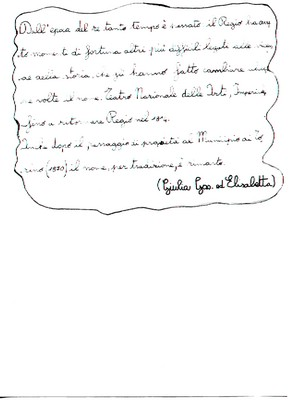 Dall'epoca del re tanto tempo è passato il Regio ha avu
to momenti di fortuna altri più difficili legati alla
alla storia, che gli hanno fatto cambiare
volte il nome: Teatro Nazionale delle Arti, Imperia
fino a ritornare Regio nel
Anche dopo il passaggio di proprietà al Municipio di To
rino (1870) il nome, per tradizione, è rimasto.
(Giulia Gpo. ed Elisabetta)